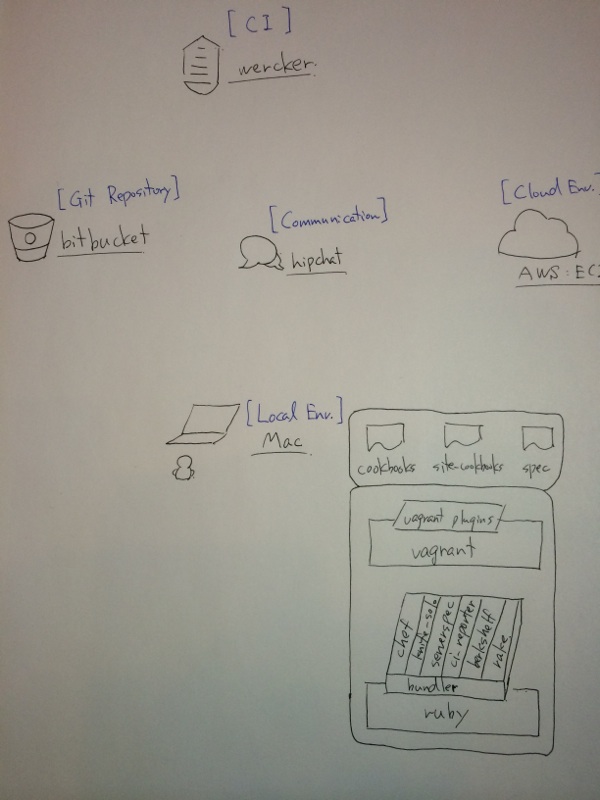 [CI]
wercker.
[Git Repository]
bitbucket
[Communication]
hipchat
[Cloud Env.]
AWS:EC
[Local Env.]
Mac
cookbooks
site-cookbooks
spec
vagrant plugins
vagrant
chef
knife-solo
serverspec
ci-reporter
berkshelf
rake
bundler
ruby